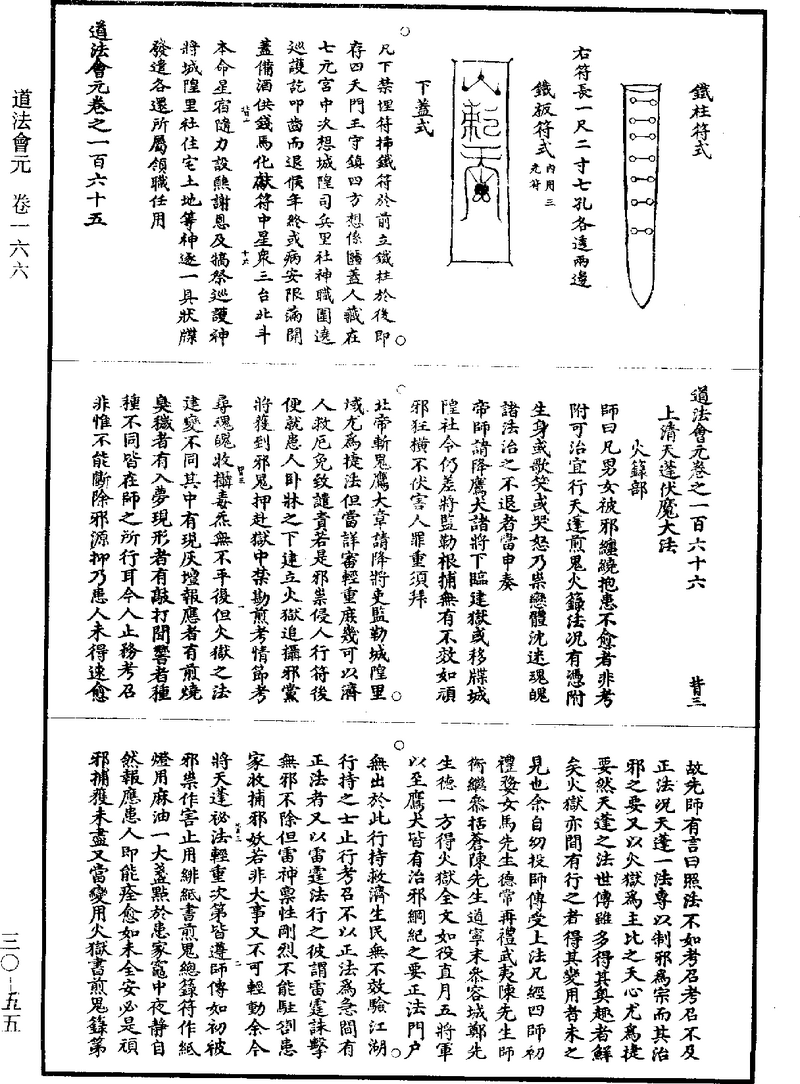 鐵柱符式
右符長一尺二寸七孔各透兩邊
鐵板符式內用三光符
下蓋式
凡下禁埋符插鐵符於前立鐵柱於後即
存四天門王守鎮四方想係覆蓋人藏在
七元宮中次想城隍司兵里社神職圍遶
巡護訖叩齒而退候年終或病安限滿開
蓋備酒供錢馬化獻符中星衆三台北斗
本命星宿隨力設醮謝恩及犒祭巡護神
將城隍里社住宅土地等神逐一具狀牒
發遣各還所屬領職任用
道法會元卷之一百六十五
道法會元卷之一百六十六 昔三
上清天蓬伏魔大法
火籙部
師曰凡男女被邪纏繞抱患不愈者非考
附可治宜行天蓬煎鬼火籙法況有憑附
生身或歌笑或哭怒乃祟戀體沈迷魂魄
諸法治之不退者當申奏
帝師請降鷹犬諸將下臨建獄或移牒城
隍社令仍差將監勒根捕無有不效如頑
邪狂橫不伏害人罪重須拜
北帝斬鬼鷹犬章請降將吏監勒城隍里
域尤為捷法但當詳審輕重庶幾可以濟
人救厄免致譴責若是邪祟侵人行符後
便就患人臥牀之下建立火獄追攝邪黨
將獲到邪鬼押赴獄中禁勘煎考情節考
尋魂魄收攝毒炁無不平復但火獄之法
建變不同其中有現灰壇報應者有煎燒
臭穢者有入夢現形者有敲打聞響者種
種不同皆在師之所行耳今人止務考召
非惟不能斷除邪源抑乃患人未得速愈
故先師有言曰照法不如考召考召不及
正法況天蓬一法專以制邪為宗而其治
邪之要又以火獄為主比之天心尤為捷
要然天蓬之法世傳雖多得其奧趣者鮮
矣火獄亦間有行之者得其變用者未之
見也余自幼投師傳受上法凡經四師初
禮婺女馬先生德常再禮武夷陳先生師
術繼參括蒼陳先生道寧末參容城鄭先
生德一方得火獄全文如役直月五將軍
以至鷹犬皆有治邪綱紀之要正法門戶
無出於此行持救濟生民無不效驗江湖
行持之士止行考召不以正法為急間有
正法者又以雷霆法行之彼謂雷霆誅擊
無邪不除但雷神稟性剛烈不能駐劄患
家收捕邪妖若非大事又不可輕動余今
將天蓬祕法輕重次第皆遵師傳如初被
邪祟作害止用緋紙書煎鬼總籙符作紙
燈用麻油一大盞點於患家竈中夜靜自
然報應患人即能痊愈如未全安必是頑
邪捕獲未盡又當變用火獄書煎鬼籙第
道法會元 卷一六六
三〇-五五